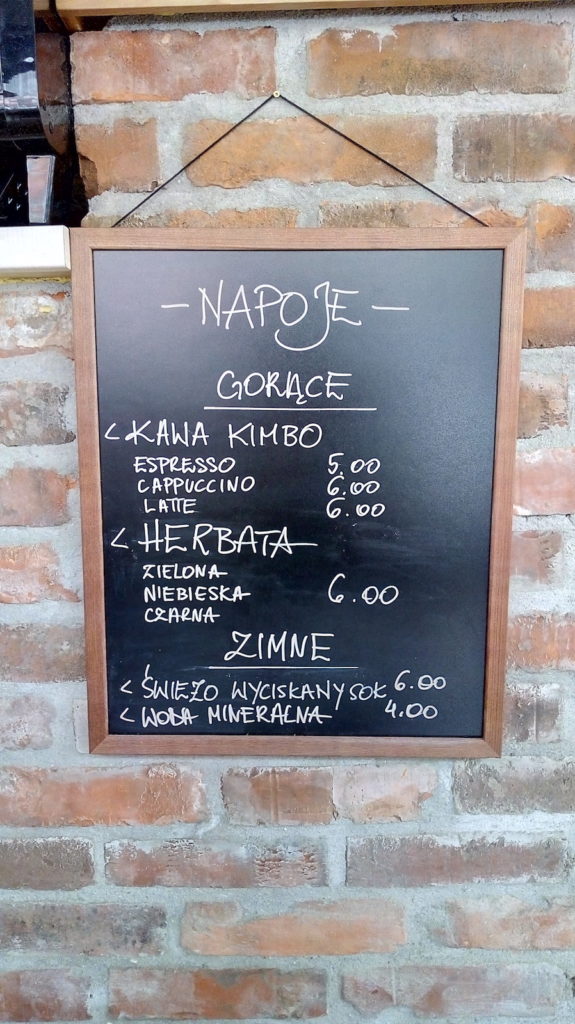 - NAPOJE -
GORĄCE
< KAWA KIMBO
ESPRESSO 5.00
CAPPUCCINO 6.00
LATTE 6.00
< HERBATA
ZIELONA
NIEBIESKA 6.00
CZARNA
ZIMNE
< ŚWIEŻO WYCISKANY SOK 6.00
< WODA MINERALNA 4.00